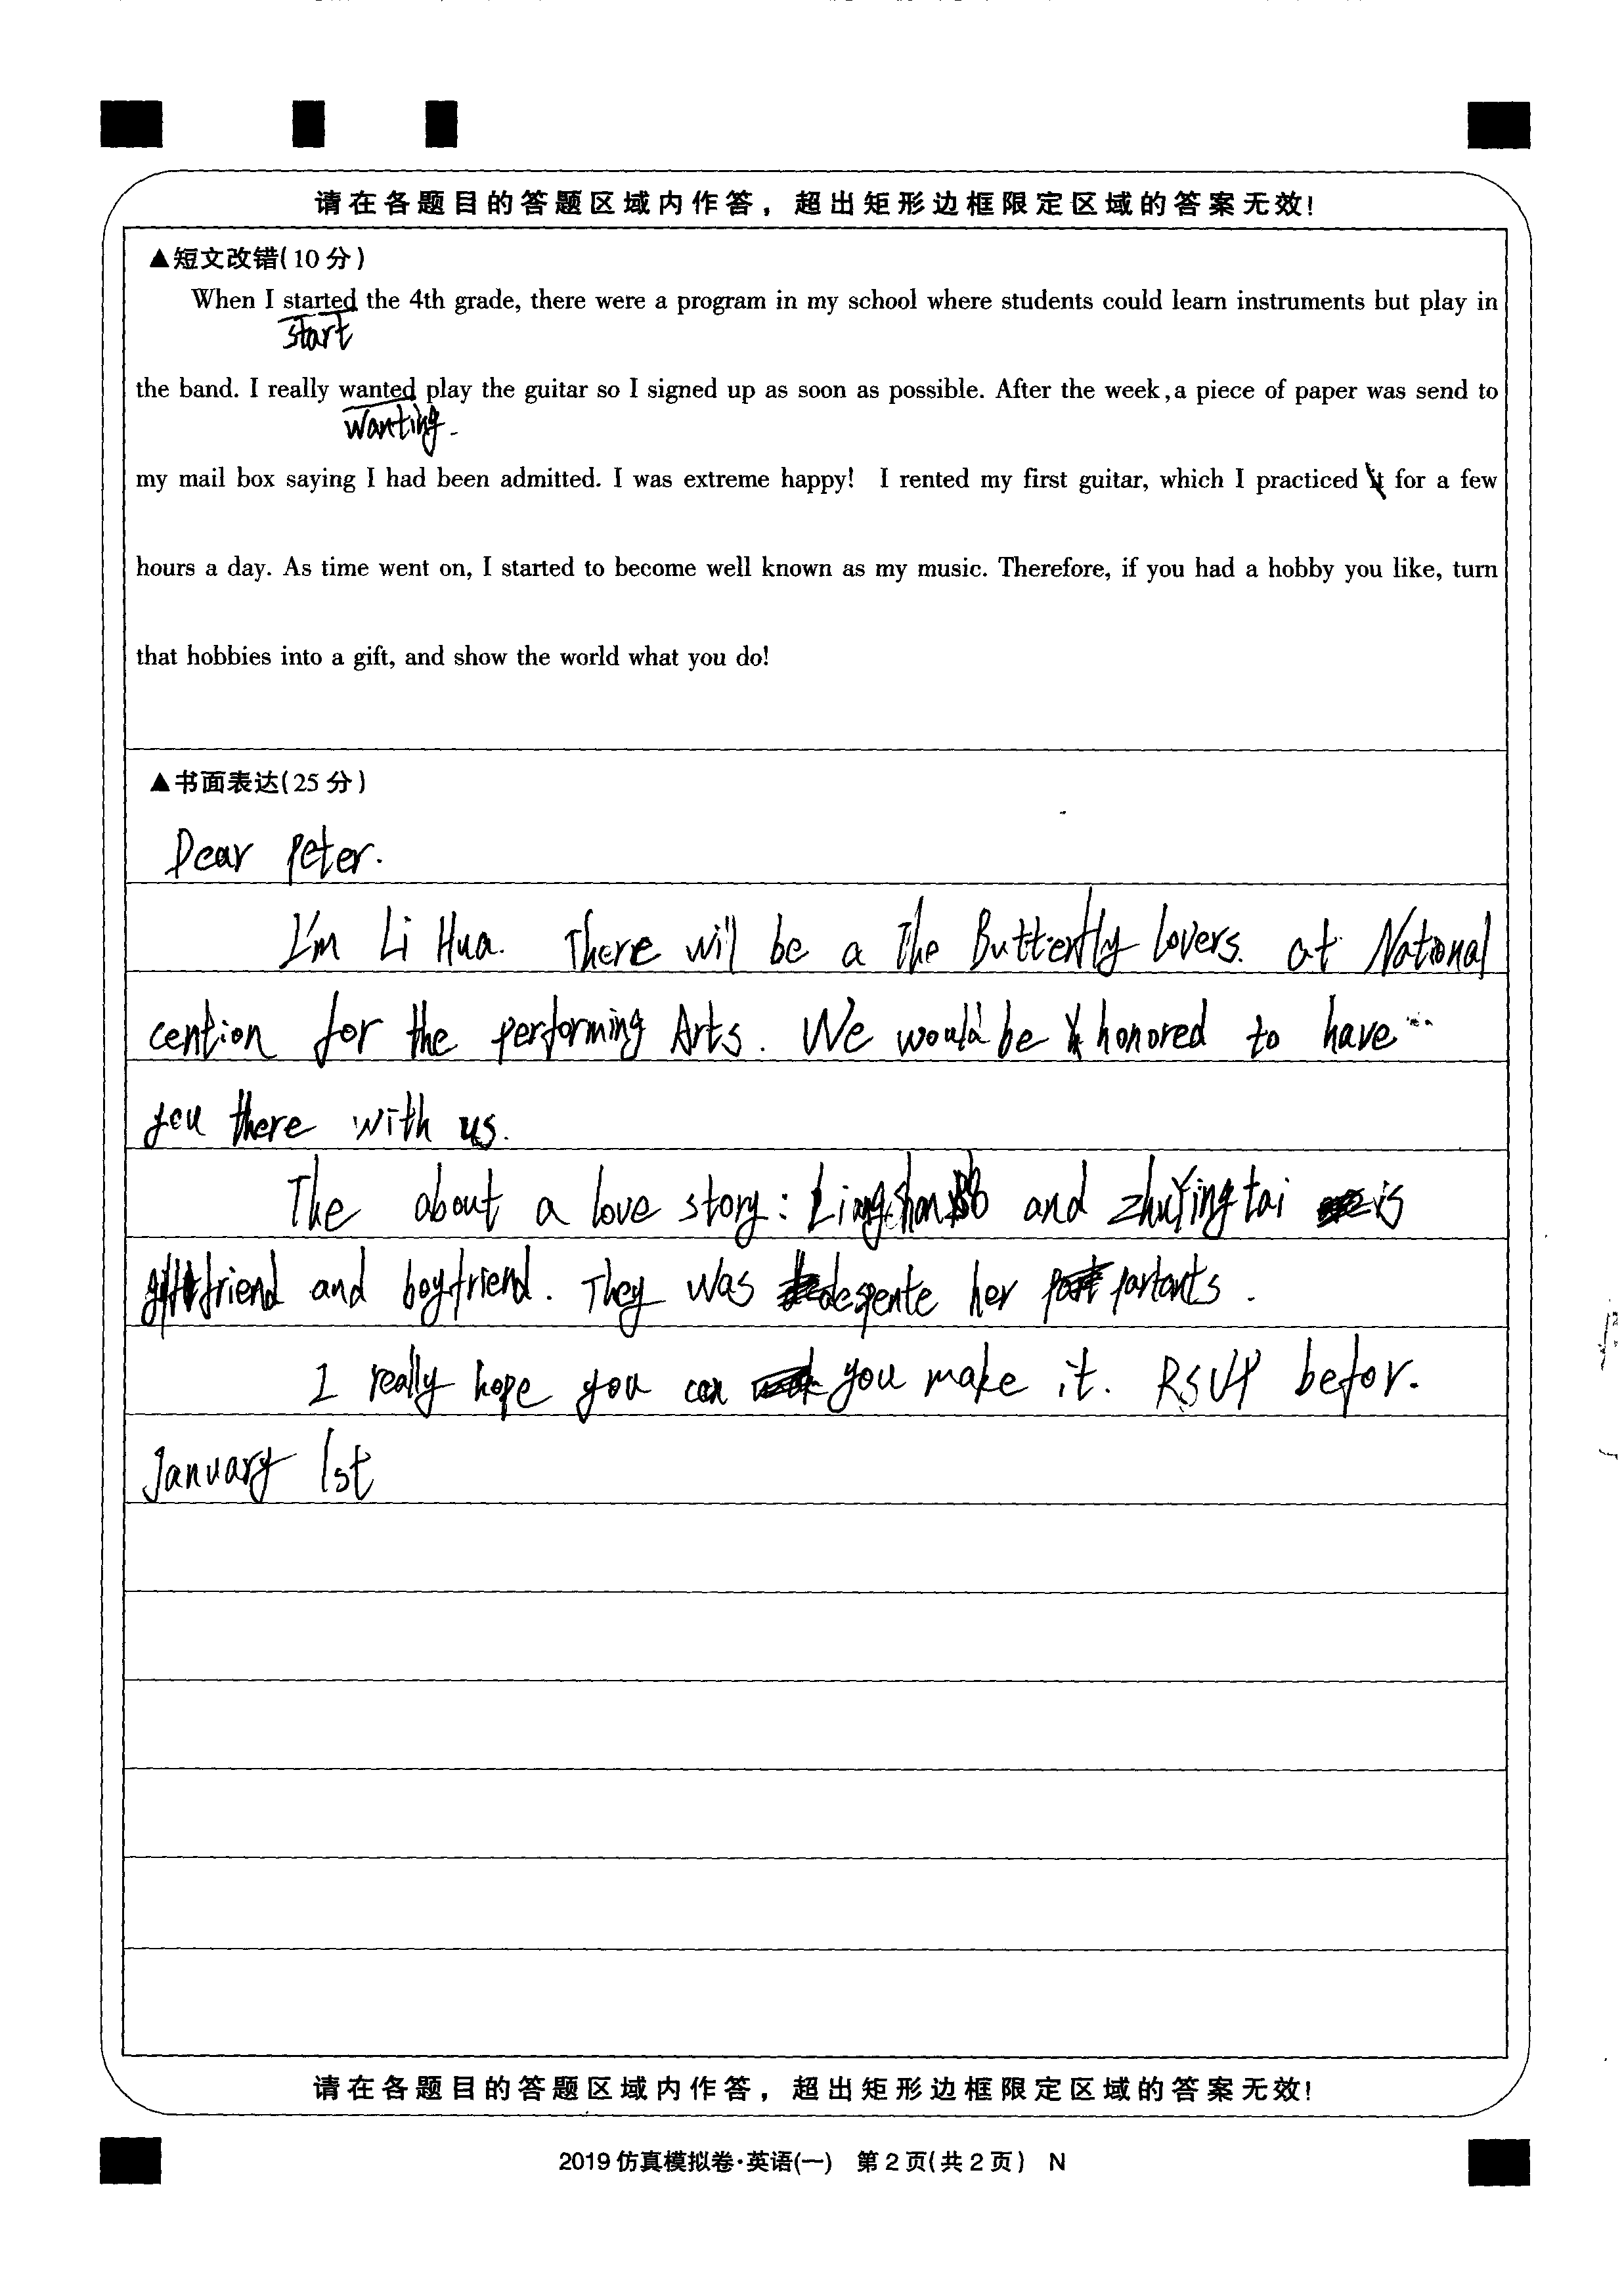 请在各题目的答题区域内作答，超出矩形边框限定区域的答案无效!
▲短文改错(10分)
When I started the 4th grade, there were a program in my school where students could learn instruments but play in
start
the band. I really wanted play the guitar so I signed up as soon as possible. After the week, a piece of paper was send to
Wanting.
my mail box saying I had been admitted. I was extreme happy! I rented my first guitar, which I practiced it for a few
hours a day. As time went on, I started to become well known as my music. Therefore, if you had a hobby you like, turn
that hobbies into a gift, and show the world what you do!
▲书面表达(25分)
Dear Peter.
I'm Li Hua. There will be a The Butterfly lovers. at National
cention for the performing Arts. We would be honored to have
you there with us.
The about a love story: and zhuYingtai is
friend and boyfriend. They was despente her partants.
I really hope you can you make it. RSVP befor.
January 1st
请在各题目的答题区域内作答，超出矩形边框限定区域的答案无效!
2019仿真模拟卷·英语(一) 第2页(共2页) N